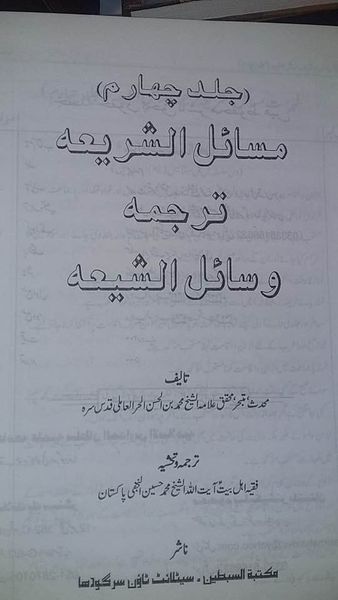 (جلد چہارم)
مسائل الشریعہ
ترجمہ
وسائل الشیعہ
تالیف
محدث متبحر محقق علامہ الشیخ محمد بن الحسن الحر العاملی قدس سرہ
ترجمہ و تحشیہ
فقیہ اہل بیت آیت اللہ الشیخ محمد حسین النجفی پاکستان
ناشر
مکتبة السبطین ۔ سیٹلائٹ ٹاؤن سرگودھا